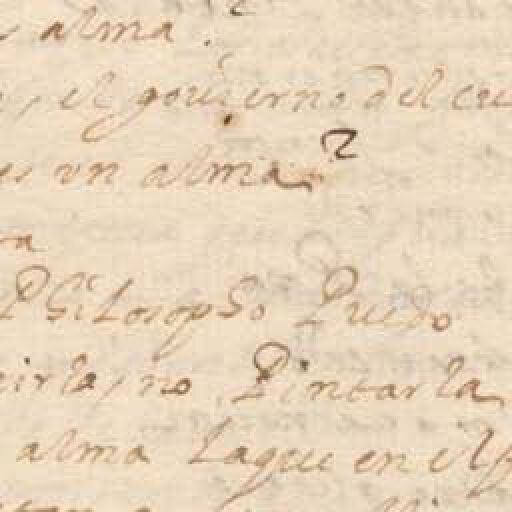 alma.
el gouierno del cu
es vn alma?
ra
Philosopho Puedo
irla, no Pintarla
alma Laque en el